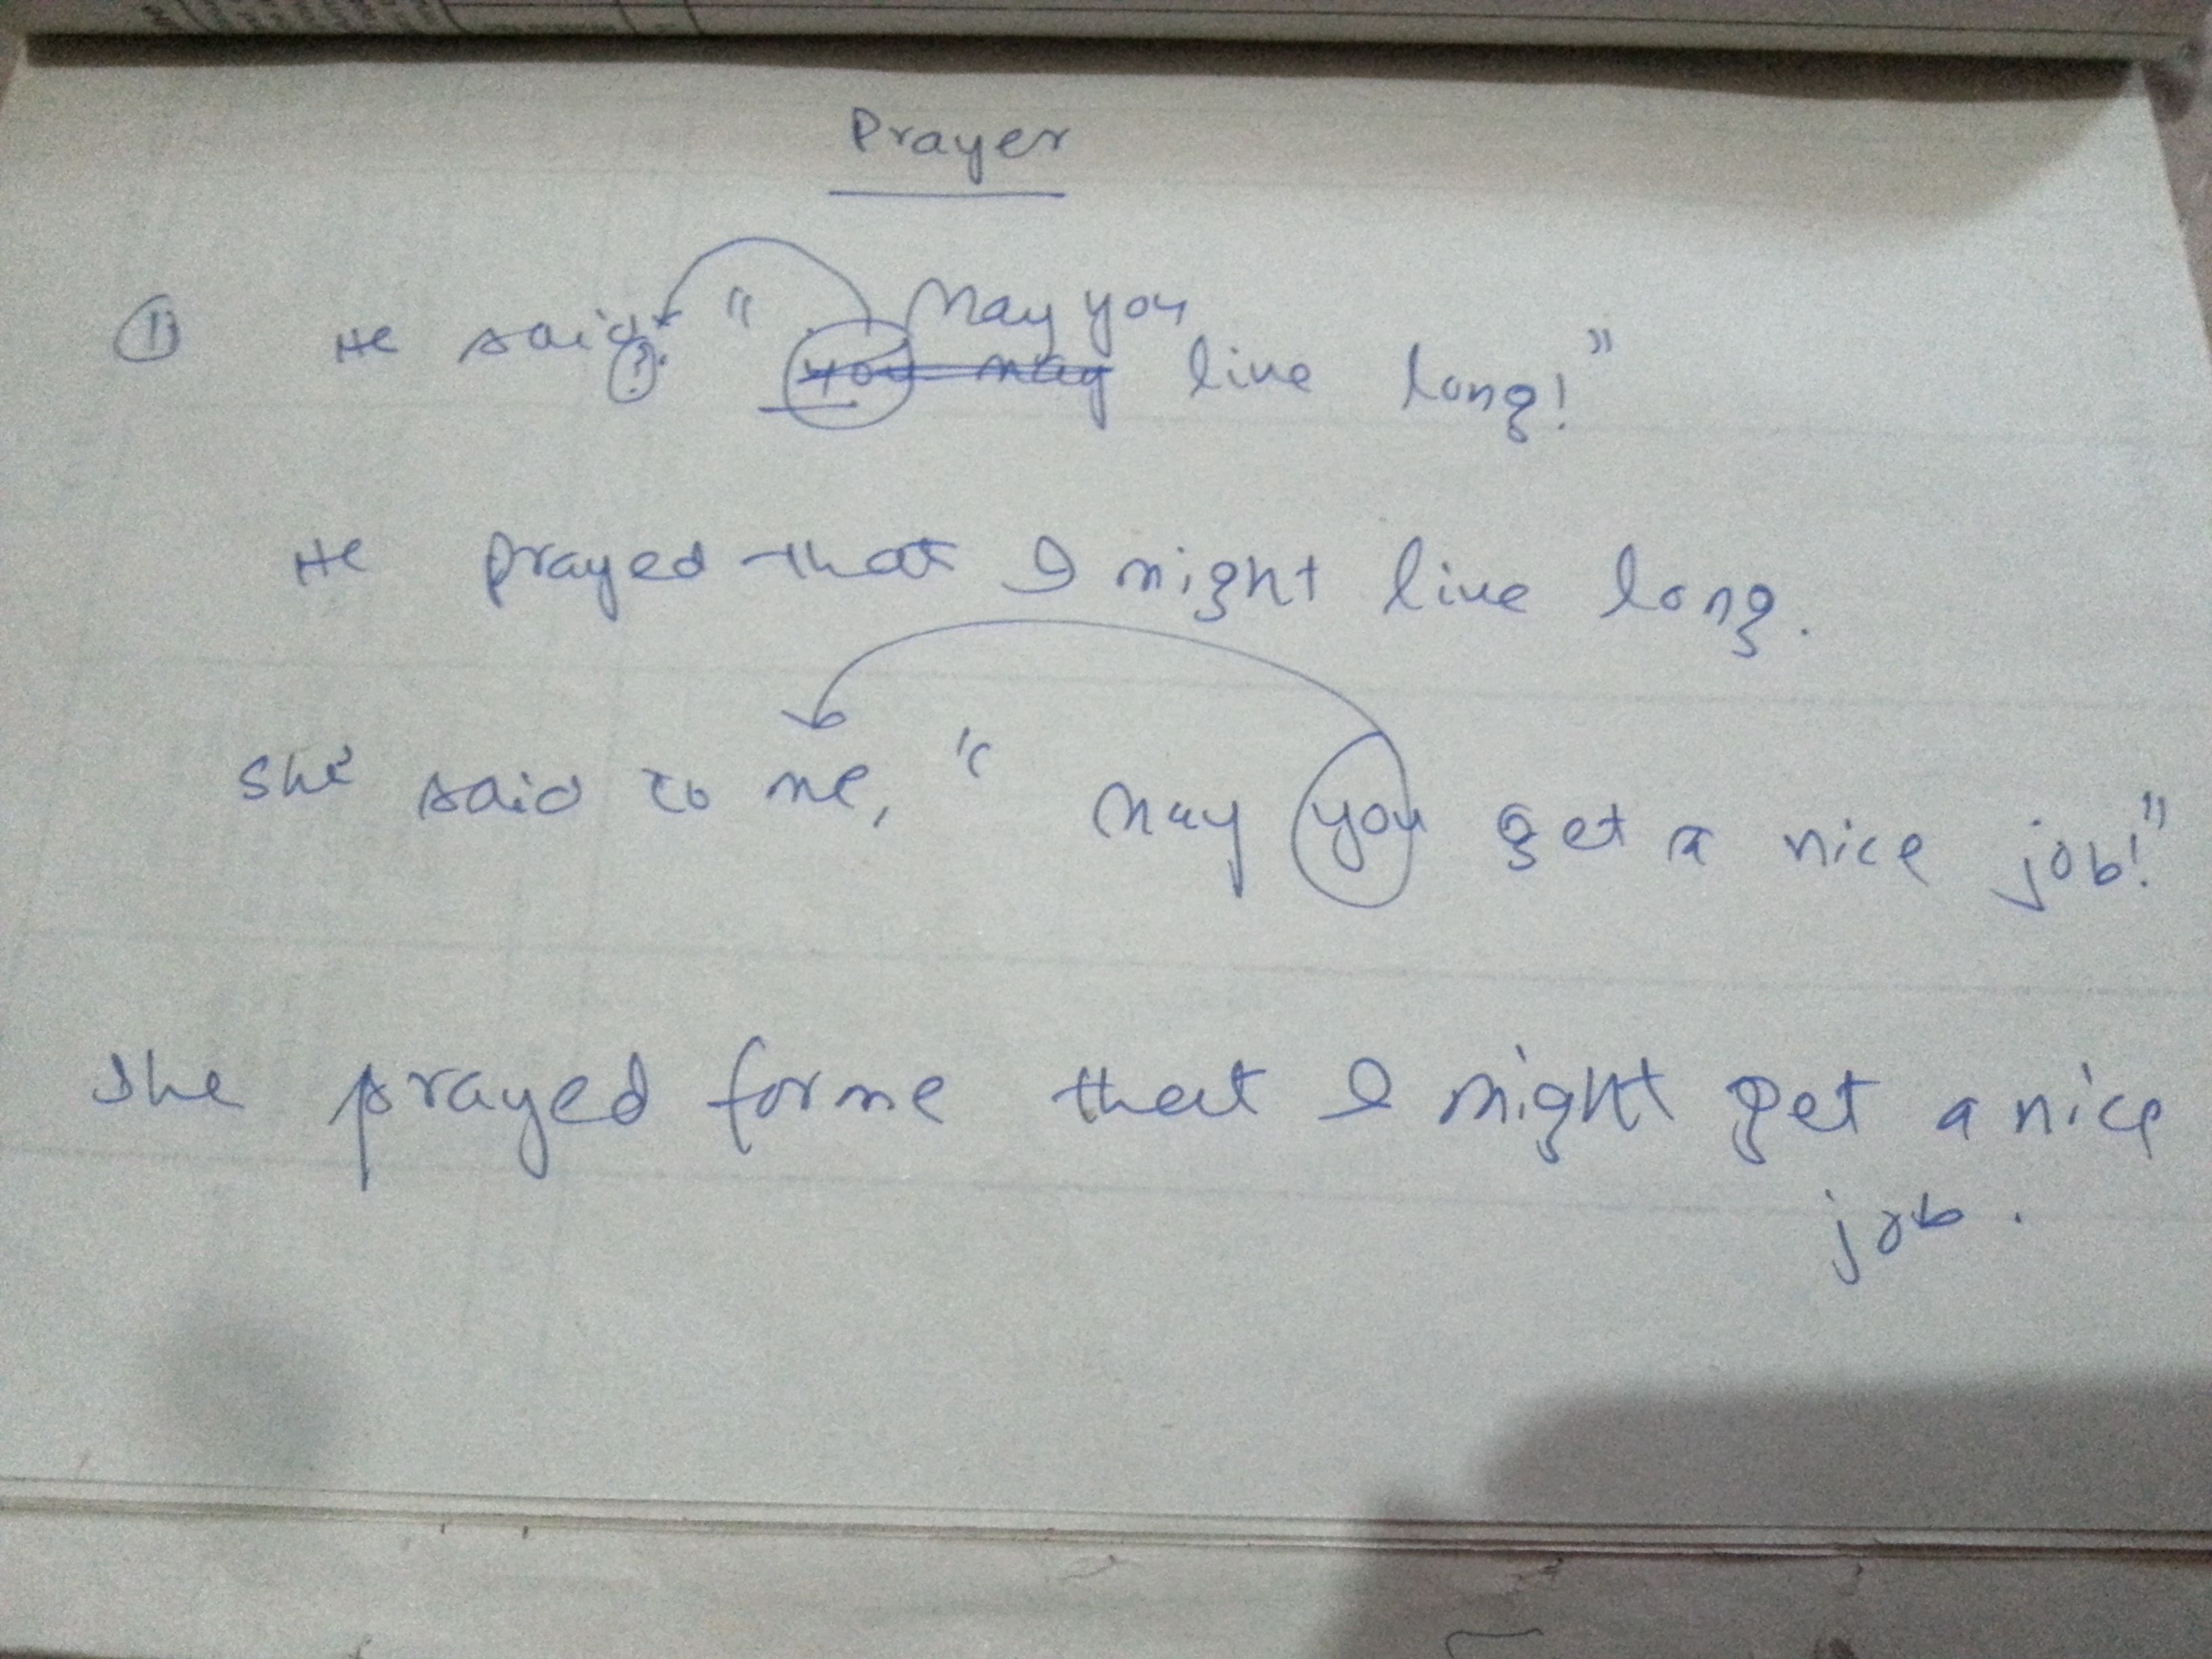 Prayer
① He said, (?) " you may May you live long! "
He prayed that I might live long.
She said to me, " May you get a nice job! "
She prayed for me that I might get a nice
job.